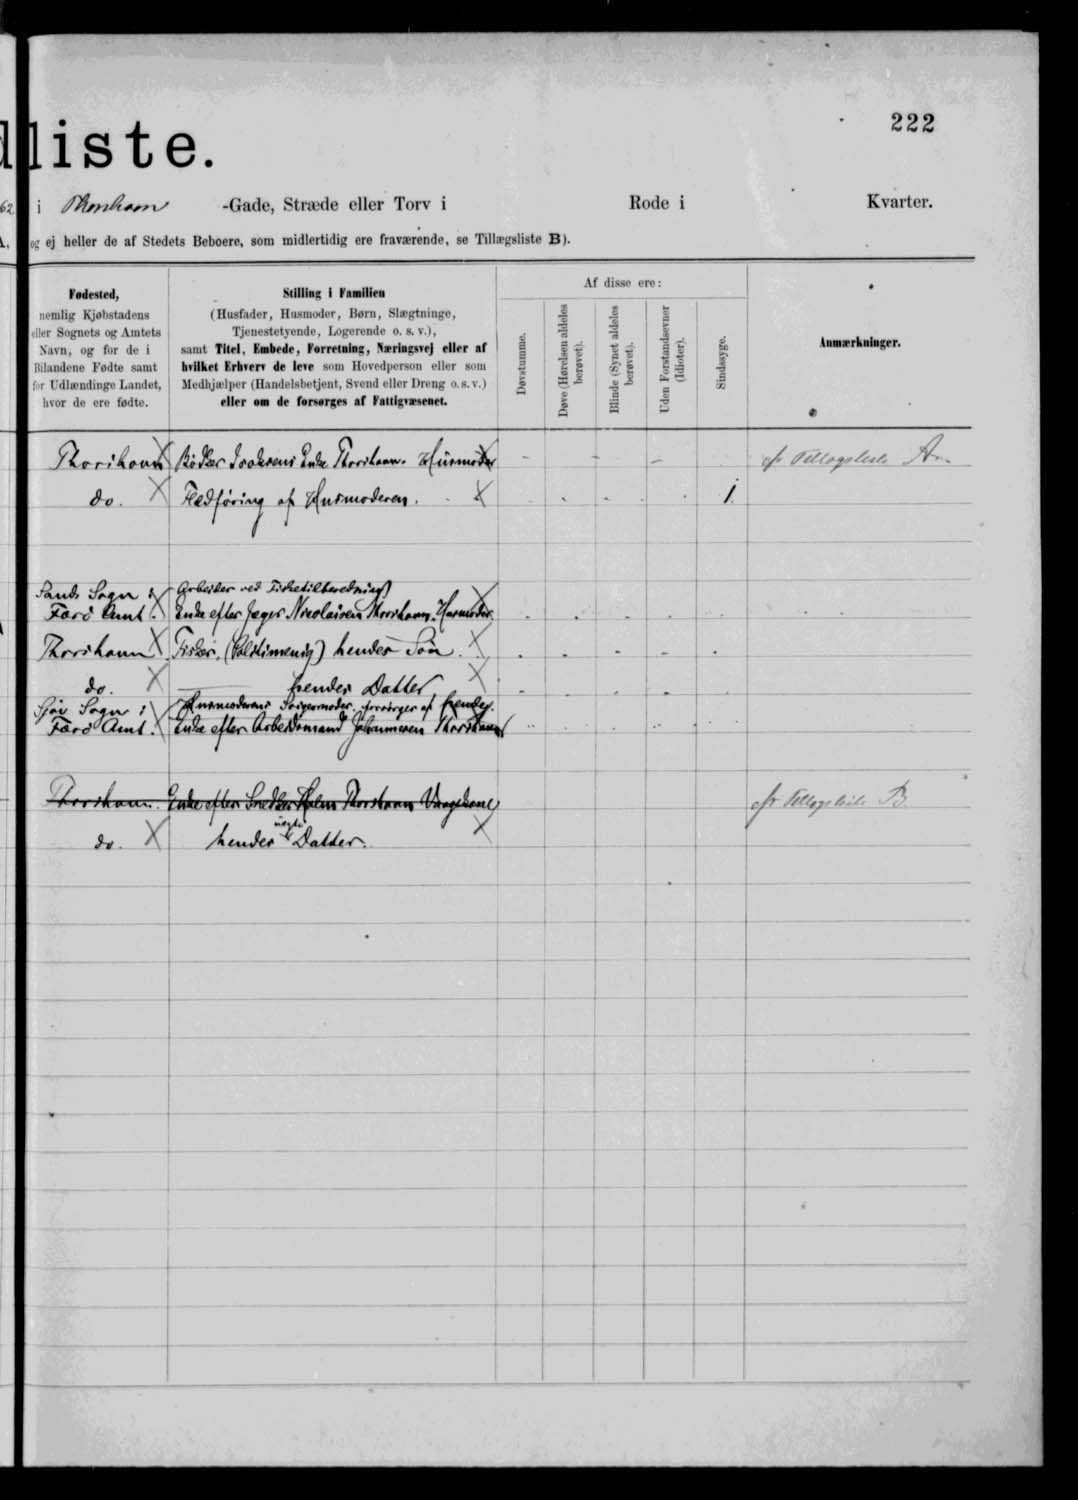 222
dliste.
62 i Thorshavn -Gade, Stræde eller Torv i Rode i Kvarter.
A, og ej heller de af Stedets Beboere, som midlertidig ere fraværende, se Tillægsliste B).
Fødested,
nemlig Kjøbstadens
eller Sognets og Amtets
Navn, og for de i
Bilandene Fødte samt
for Udlændinge Landet,
hvor de ere fødte.
Stilling i Familien
(Husfader, Husmoder, Børn, Slægtninge,
Tjenestetyende, Logerende o. s. v.),
samt Titel, Embede, Forretning, Næringsvej eller af
hvilket Erhverv de leve som Hovedperson eller som
Medhjælper (Handelsbetjent, Svend eller Dreng o.s.v.)
eller om de forsørges af Fattigvæsenet.
Af disse ere:
Døvstumme.
Døve (Hørelsen aldeles
berøvet).
Blinde (Synet aldeles
berøvet).
Uden Forstandsevner
(Idioter).
Sindssyge.
Anmærkninger.
Thorshavn Bødker Isaksens Enke Thorshavn. Husmoder cfr Tillægsliste A
do. Fledføring af Husmoderen. 1.
Sands Sogn i Arbeider ved Fisketilberedning)
Færø Amt. Enke efter Jæger Nicolaisen Thorshavn. Husmoder.
Thorshavn Fisker. hendes Søn
do. hendes Datter
Sogn i Husmoderens Svigermoder, forsørges af hende.
Færø Amt. Enke efter Arbeidsmand Johannesen Thorshavn
Thorshavn. Enke efter Snedker Holm Thorshavn cfr Tillægsliste B
do. hendes uægte Datter.